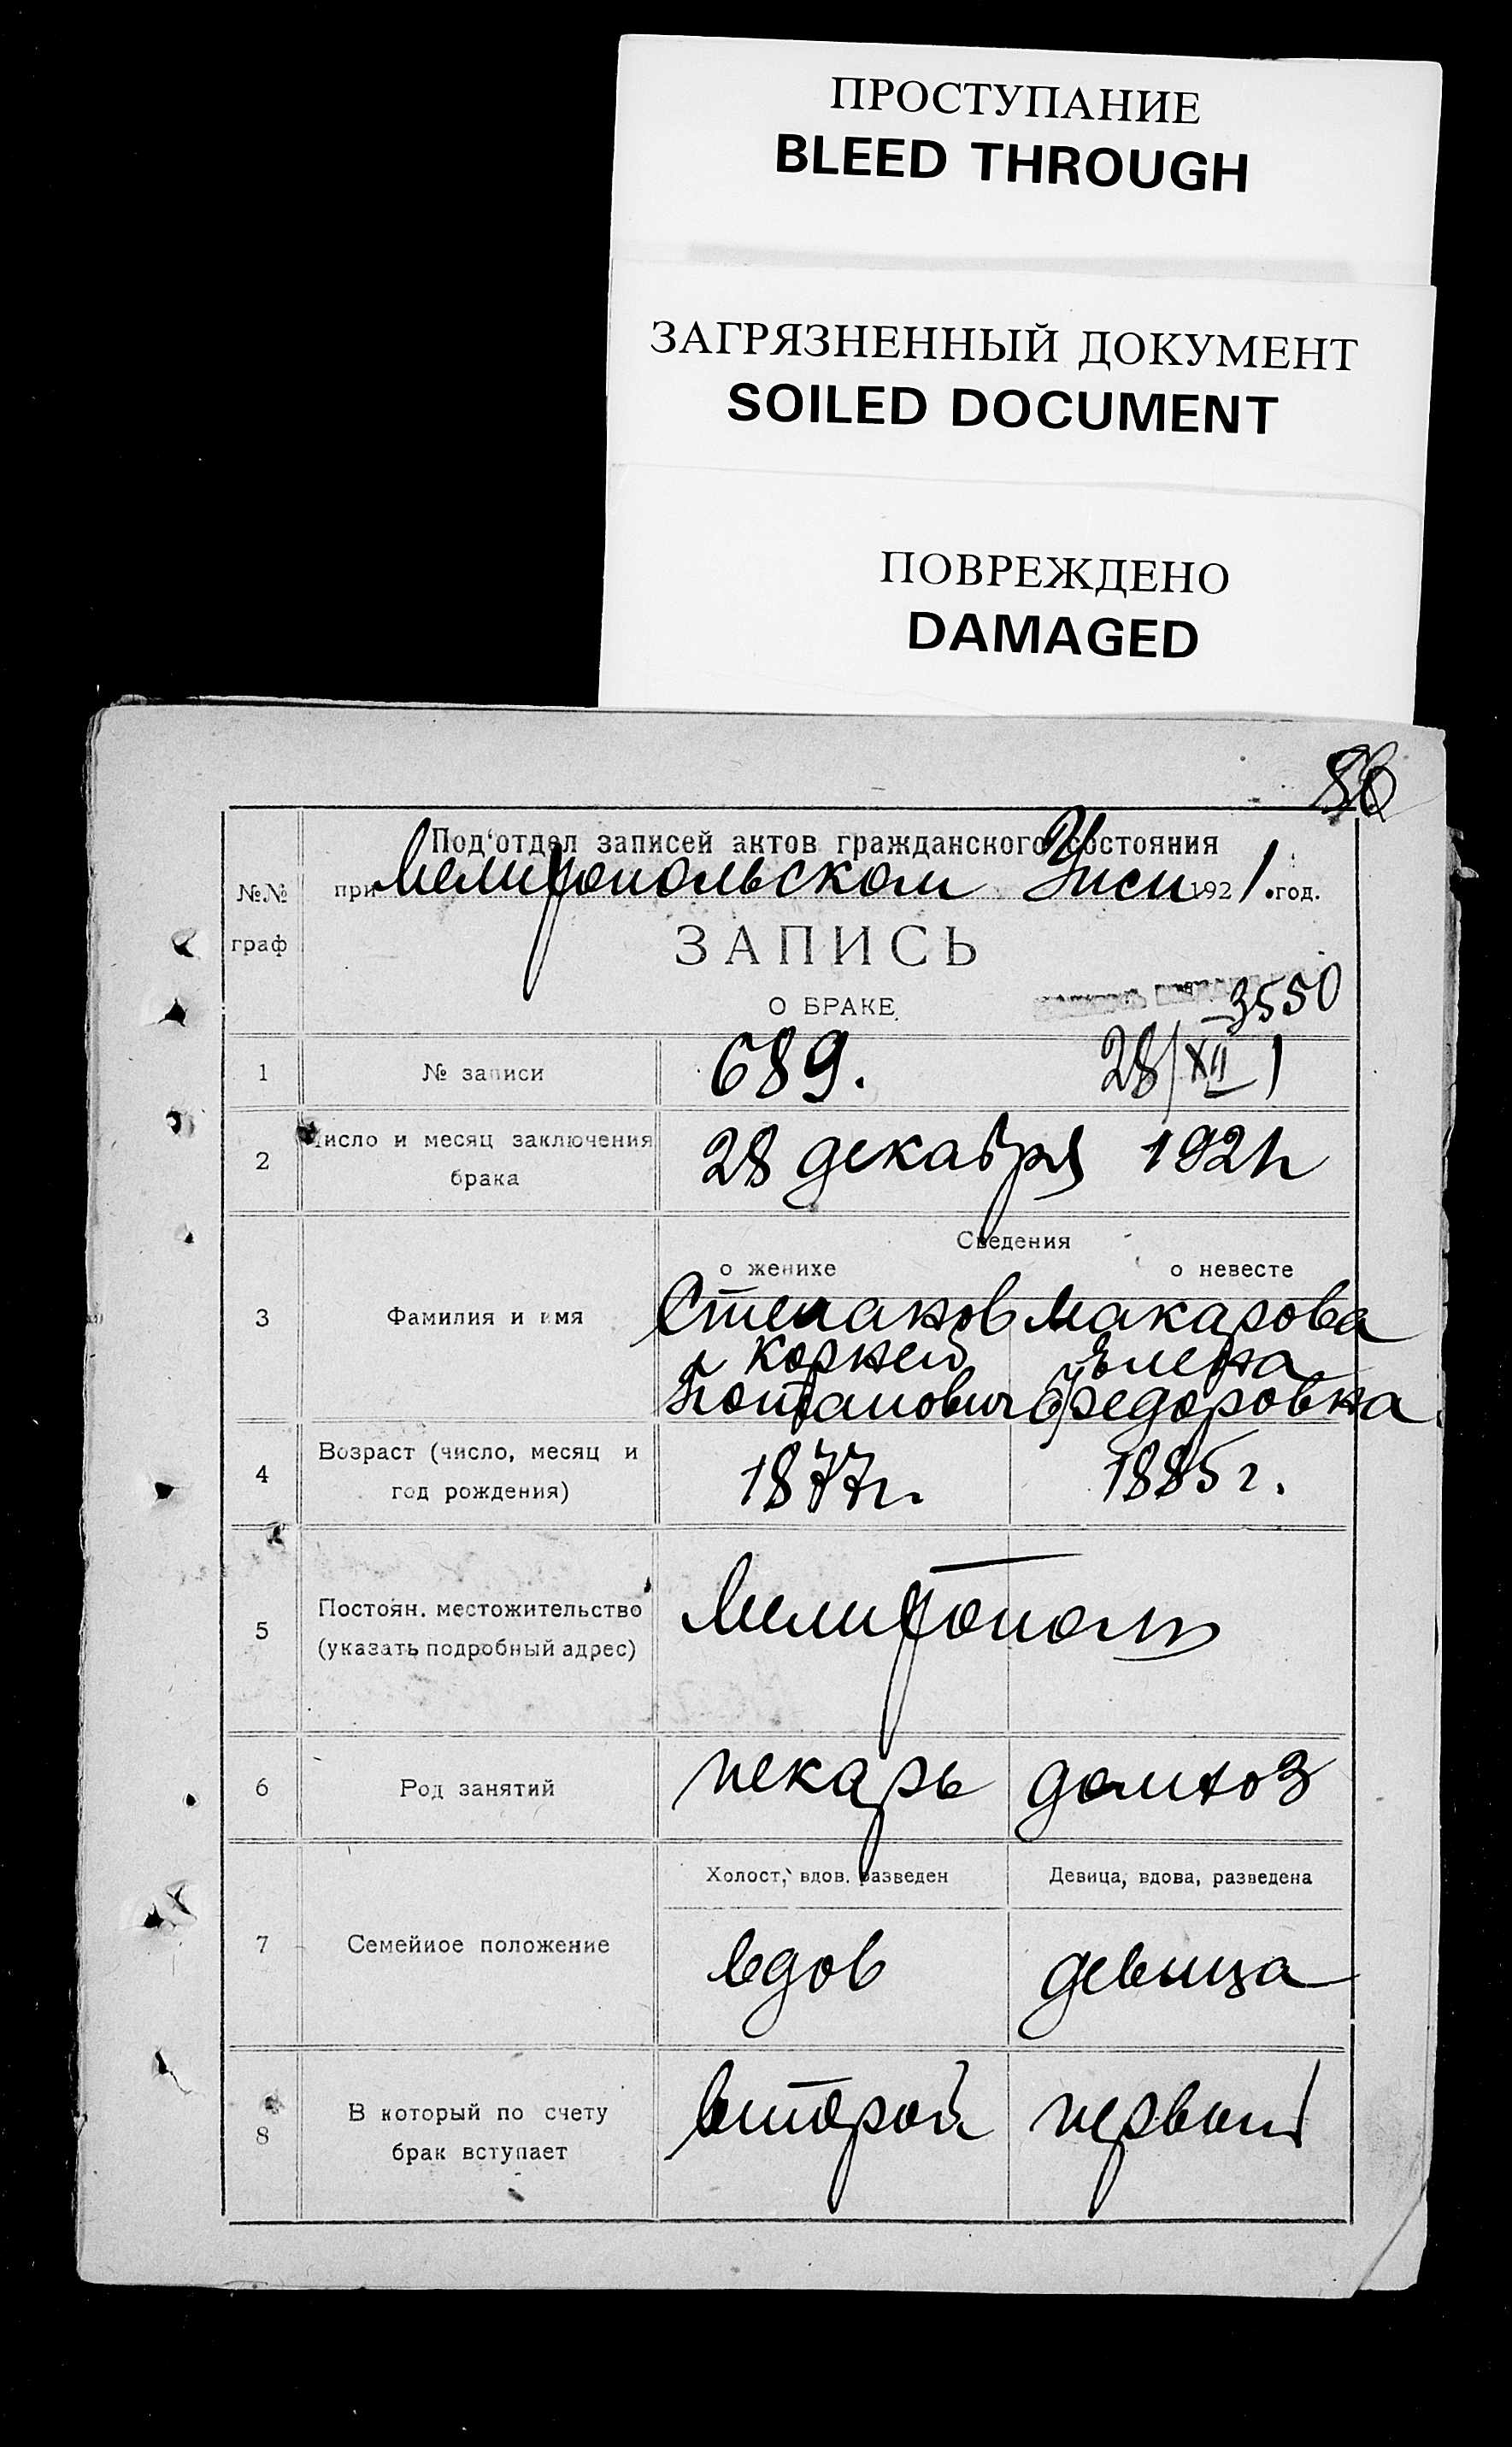 ПРОСТУПАНИЕ
BLEED THROUGH
ЗАГРЯЗНЕННЫЙ ДОКУМЕНТ
SOILED DOCUMENT
ПОВРЕЖДЕНО
DAMAGED
Под'отдел записей актов гражданского состояния
№№ граф
при Мелитопольском 1921. год.
ЗАПИСЬ
О БРАКЕ
3550
1 № записи 689. 28/XII 1
2 Число и месяц заключения брака 28 декабря 1921г
Сведения
о женихе о невесте
3 Фамилия и имя Степанов Макарова
Корней Елена
Потапович Федоровна
4 Возраст (число, месяц и год рождения) 1877г. 1885г.
5 Постоян. местожительство (указать подробный адрес) Мелитополь
6 Род занятий пекарь домхоз
Холост, вдов. разведен Девица, вдова, разведена
7 Семейное положение вдов девица
8 В который по счету брак вступает второй первый